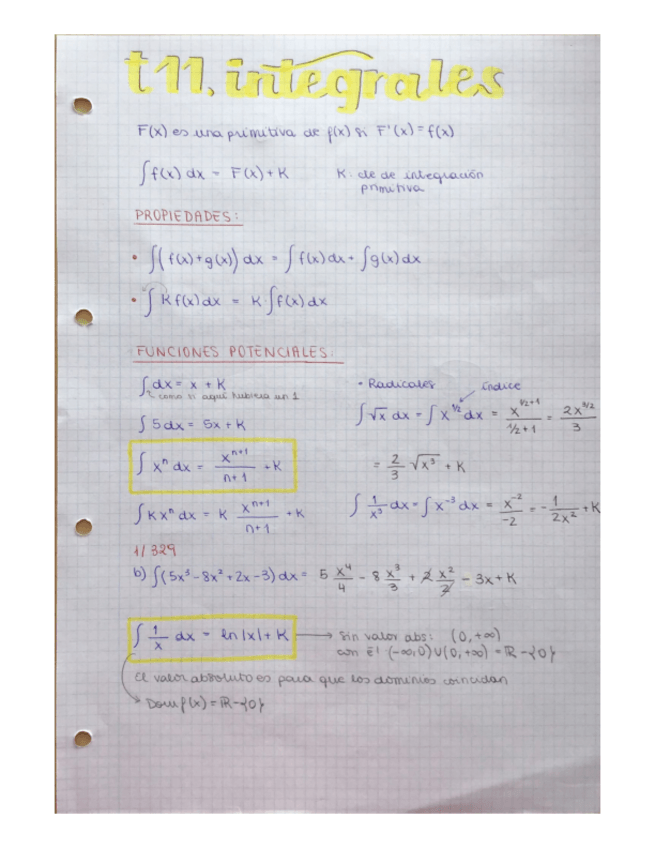 t11. integrales
F(x) es una primitiva de f(x) si F'(x) = f(x)
∫f(x) dx = F(x) + K K: cte de integración
primitiva
PROPIEDADES:
• ∫(f(x)+g(x)) dx = ∫f(x)dx + ∫g(x)dx
• ∫K f(x)dx = K·∫f(x)dx
FUNCIONES POTENCIALES:
∫dx = x + K
como si aquí hubiera un 1
∫5dx = 5x + K
∫xⁿ dx = xⁿ⁺¹/n+1 + K
∫Kxⁿ dx = K xⁿ⁺¹/n+1 + K
• Radicales índice
∫√x dx = ∫x^1/2 dx = x^(1/2+1)/(1/2+1) = 2x^3/2/3
= 2/3 √x³ + K
∫1/x³ dx = ∫x⁻³ dx = x⁻²/-2 = -1/2x² + K
1/329
b) ∫(5x³-8x²+2x-3)dx = 5 x⁴/4 - 8 x³/3 + 2 x²/2 - 3x + K
∫1/x dx = ln|x| + K → Sin valor abs: (0,+∞)
con él: (-∞,0)∪(0,+∞) = ℝ-{0}
el valor absoluto es para que los dominios coincidan
Dom f(x) = ℝ-{0}